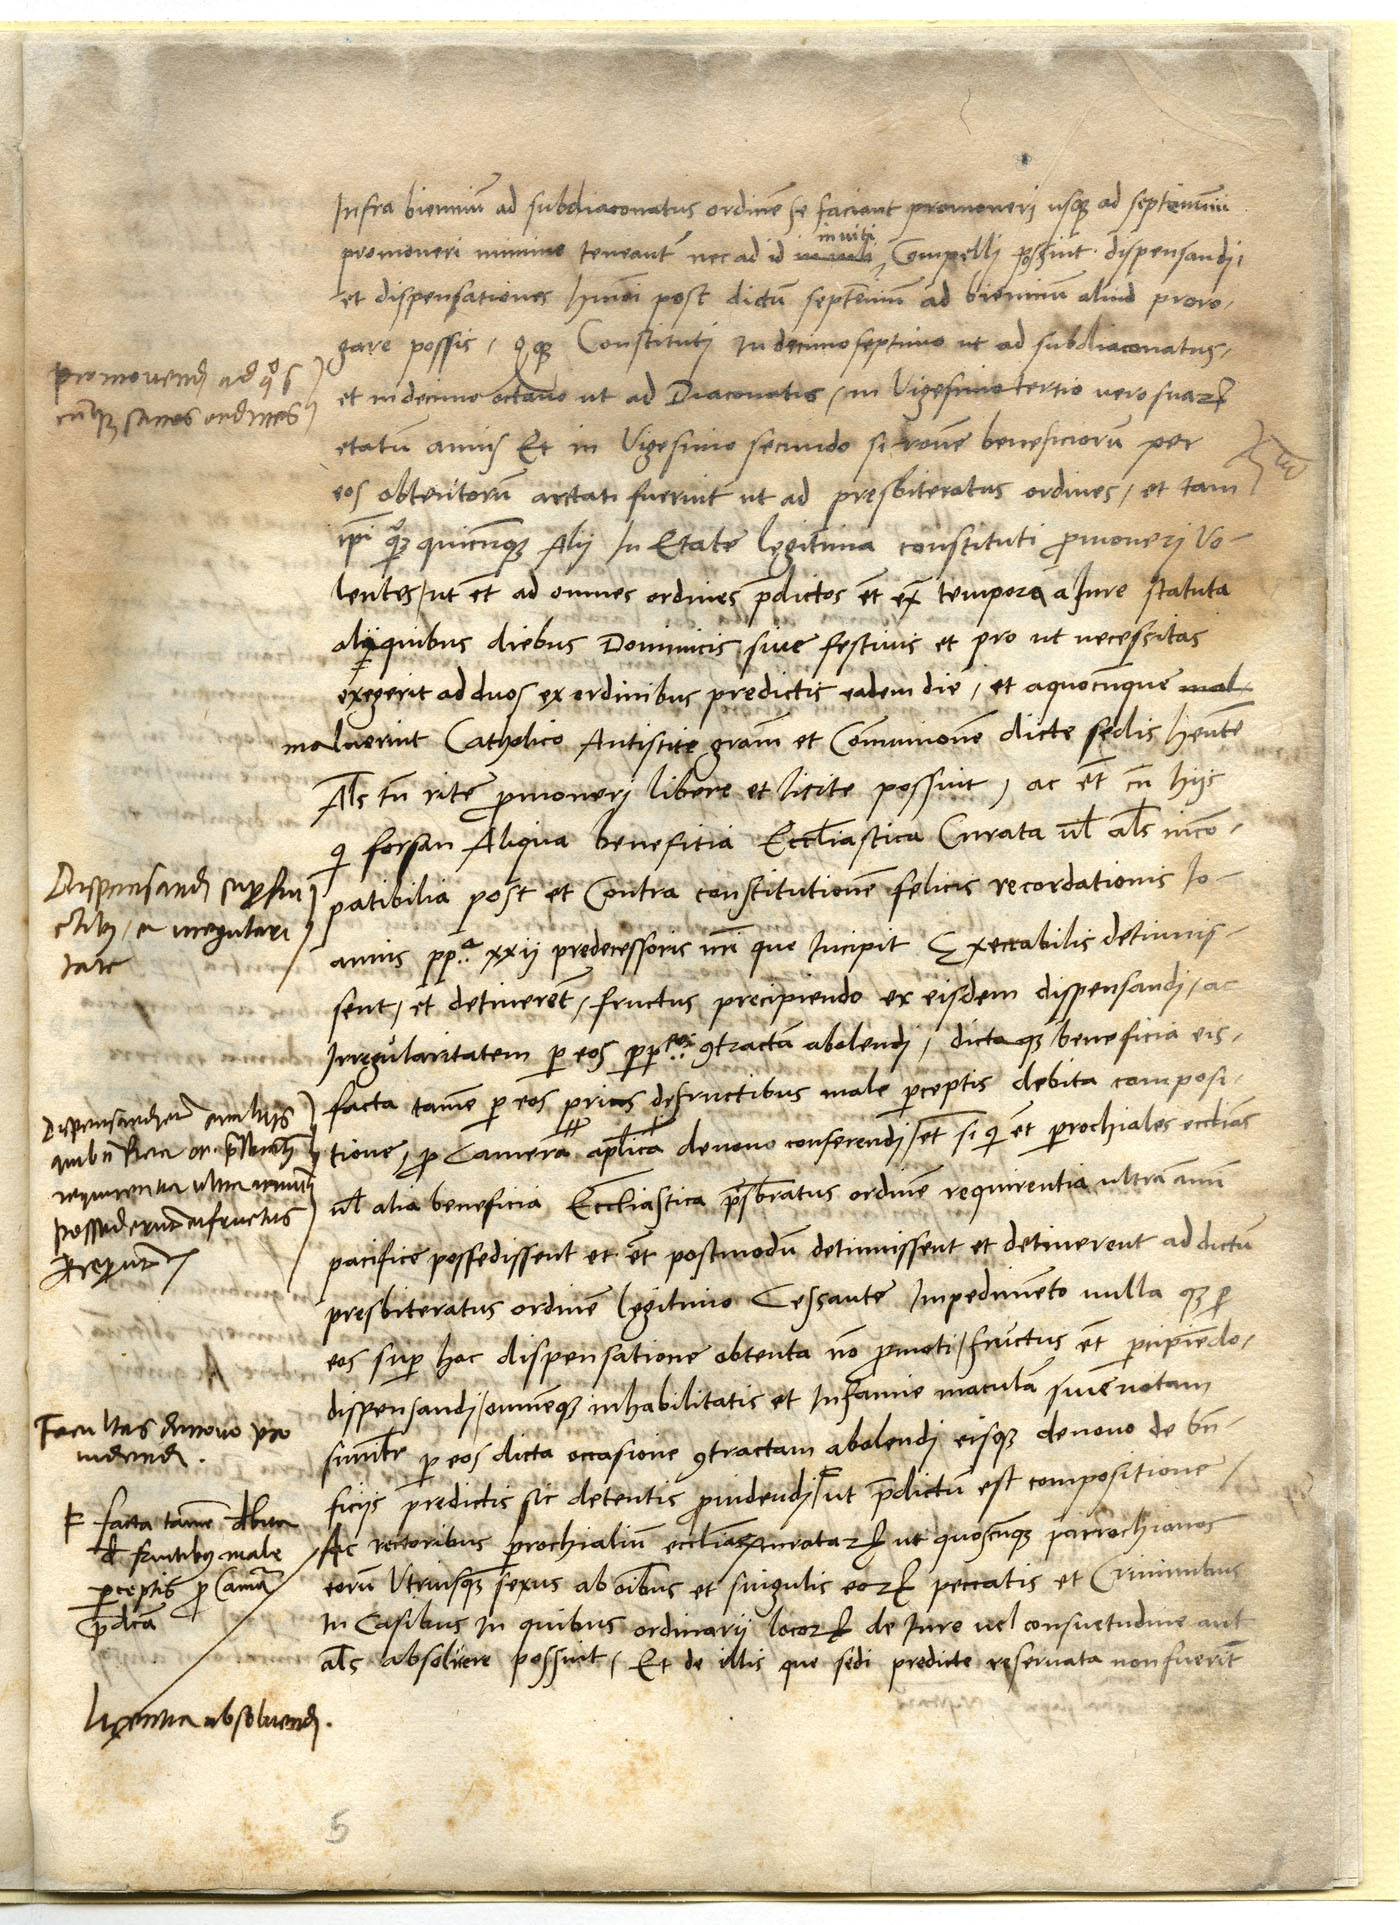 Infra bienniū ad subdiaconatus ordinē se faciant promoneri usqȝ ad septenniū
promoneri minime teneant̄ nec ad id inuiti Compelli possint dispensandi,
et dispensationes hmōi post dictū septēniū ad biennium aliud proro-
gare possis, qqȝ Constituti In decimoseptimo ut ad subdiaconatus,
et in decimo octauo ut ad Diaconatus, in Vigesimo tertio uero suaꝝ
etatū annis Et in Vigesimo secundo si rōne beneficiorū per
eos obtentorū arctati fuerint ut ad presbiteratus ordines, et tam
ip̄i qȝ quicūnqȝ Alij In Etate legitima constituti ꝓmoueri Vo-
lentes, ut ēt ad omnes ordines p̄dictos ēt ex̄ tempora a Iure statuta
aliquibus diebus Dominicis siue festiuis et pro ut necessitas
exegerit ad duos ex ordinibus predictis eadem die, et aquocunque mal
maluerint Catholico Antistite grām et Cōmunionē dicte sedis hentē
Al̄s tn̄ rite ꝓmoneri libere et licite possint, ac ēt cū hijs
qi forsan Aliqua benefitia Eccl̄iastica Curata ul̄ al̄s incō-
patibilia post et Contra constitutionē felicis recordationis Io-
annis pp̄ xxij predecessoris nr̄i que Incipit Execrabilis detinuis-
sent, et detinerēt, fructus precipiendo ex eisdem dispensandi, ac
Irregularitatem ꝑ eos ꝓpterea 9tractā abolendi, dictaqȝ beneficia eis,
facta tamē ꝑ eos prius de fructibus male ꝑceptis debita composi-
tione, ꝓ Camera ap̄lica denouo conferendi, et si qi ēt ꝑrochiales eccl̄ias
ul̄ alia beneficia Eccl̄iastica p̄sbratus ordinē requirentia ultra annū
pacifice possedissent et ēt postmodū detinuissent et detinerent ad dictū
presbiteratus ordinē legitimo Cessante Impedimēto nulla qȝ ꝑ
eos suꝑ hoc dispensatione obtenta nō ꝓmoti, fructus ēt ꝑcipiēdo,
dispensandi, omnēqȝ inhabilitatis et Infamie maculā siue notam
simil̄r ꝑ eos dicta occasione 9tractam abolendi eisqȝ denouo de bn̄-
ficijs predictis sic detentis ꝓuidendi, ut p̄dictū est compositione
Ac rectoribus ꝑrochialiū eccl̄iaꝝ curataꝝ ut quoscūqȝ parrochianos
eorū Vtriusqȝ sexus ab oībus et singulis eoꝝ peccatis et Criminibus
In Casibus In quibus ordinarij locoꝝ de Iure uel consuetudine aut
al̄s absoluere possint, Et de illis que sedi predicte reseruata non fuerīt
promouendi ad qos
cūqȝ sacros ordines
Dispensandi suꝑ fru
ctibȝ, et irregulari
tate
Dispensandi cū hijs
requirentia ultra annū
possederunt et fructus
ꝑceperunt
Facultas denouo pro
uidendi.
F facta tamē debita
de fructibȝ male
ꝑceptis ꝓ Camera
p̄dcā
licentia absoluendi.
5